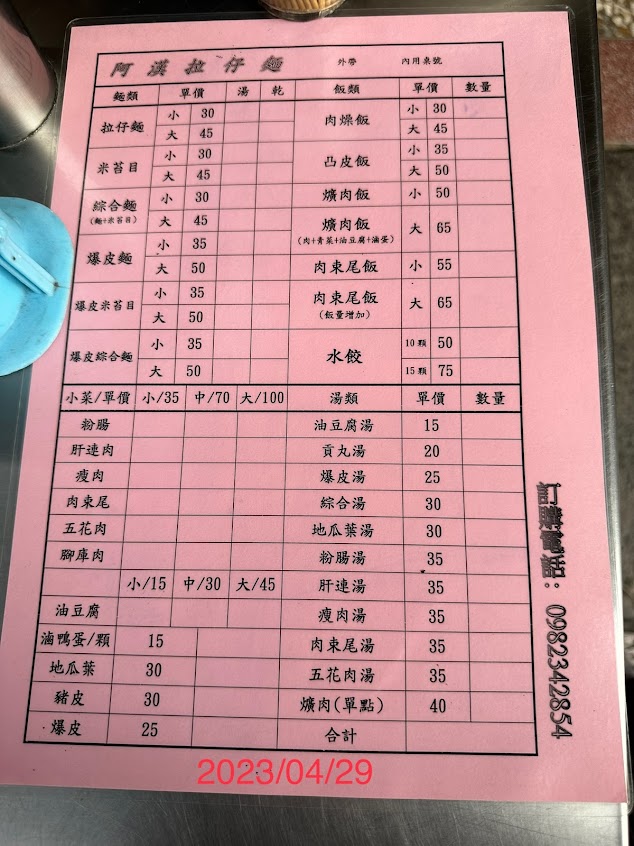 阿漢拉仔麵 外帶 內用桌號
麵類 單價 湯 乾 飯類 單價 數量
拉仔麵 小 30 大 45 肉燥飯 小 30 大 45
米苔目 小 30 大 45 凸皮飯 小 35 大 50
綜合麵 (麵+米苔目) 小 30 大 45 爌肉飯 小 50
爌肉飯 (肉+青菜+油豆腐+滷蛋) 大 65
爆皮麵 小 35 大 50 肉束尾飯 小 55
爆皮米苔目 小 35 大 50 肉束尾飯 (飯量增加) 大 65
爆皮綜合麵 小 35 大 50 水餃 10顆 50 15顆 75
小菜/單價 小/35 中/70 大/100 湯類 單價 數量
粉腸 油豆腐湯 15
肝連肉 貢丸湯 20
瘦肉 爆皮湯 25
肉束尾 綜合湯 30
五花肉 地瓜葉湯 30
腳庫肉 粉腸湯 35
小/15 中/30 大/45 肝連湯 35
油豆腐 瘦肉湯 35
滷鴨蛋/顆 15 肉束尾湯 35
地瓜葉 30 五花肉湯 35
豬皮 30 爌肉(單點) 40
爆皮 25 合計
訂購電話: 0982342854
2023/04/29